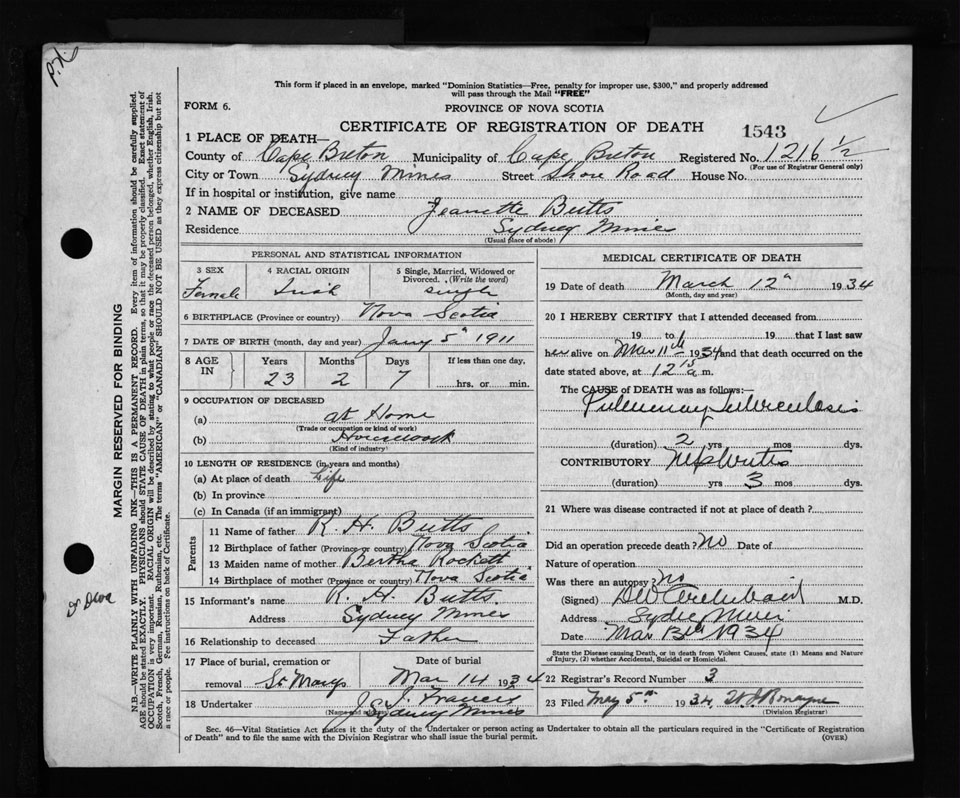 P.H.
This form if placed in an envelope, marked "Dominion Statistics—Free, penalty for improper use, $300," and properly addressed
will pass through the Mail "FREE"
FORM 6.
PROVINCE OF NOVA SCOTIA
CERTIFICATE OF REGISTRATION OF DEATH 1543
1 PLACE OF DEATH—
County of Cape Breton Municipality of Cape Breton Registered No. 1216 1/2
(For use of Registrar General only)
City or Town Sydney Mines Street Shore Road House No.
If in hospital or institution, give name
2 NAME OF DECEASED Jeanette Butts
Residence Sydney Mines
(Usual place of abode)
PERSONAL AND STATISTICAL INFORMATION
3 SEX 4 RACIAL ORIGIN 5 Single, Married, Widowed or
Divorced. (Write the word)
Female Irish single
6 BIRTHPLACE (Province or country) Nova Scotia
7 DATE OF BIRTH (month, day and year) Jany 5th 1911
8 AGE IN Years Months Days If less than one day,
23 2 7 hrs. or min.
9 OCCUPATION OF DECEASED
(a) at Home
(Trade or occupation or kind of work)
(b) Housework
(Kind of industry)
10 LENGTH OF RESIDENCE (in years and months)
(a) At place of death Life
(b) In province
(c) In Canada (if an immigrant)
Parents
11 Name of father R. H. Butts
12 Birthplace of father (Province or country) Nova Scotia
13 Maiden name of mother Bertha Rockett
14 Birthplace of mother (Province or country) Nova Scotia
15 Informant's name R. H. Butts
Address Sydney Mines
16 Relationship to deceased Father
17 Place of burial, cremation or Date of burial
removal St Marys Mar 14 1934
18 Undertaker J. S. Francis
(Name and address) Sydney Mines
MEDICAL CERTIFICATE OF DEATH
19 Date of death March 12th 1934
(Month, day and year)
20 I HEREBY CERTIFY that I attended deceased from
19 to 19 that I last saw
her alive on Mar 11th 1934 and that death occurred on the
date stated above, at 12 15 a.m.
The CAUSE of DEATH was as follows:—
Pulmonary Tuberculosis
(duration) 2 yrs mos dys.
CONTRIBUTORY Nephritis
(duration) yrs 3 mos dys.
21 Where was disease contracted if not at place of death?
Did an operation precede death? No Date of
Nature of operation
Was there an autopsy? No
(Signed) DW Archibald M.D.
Address Sydney Mines
Date Mar 13th 1934
State the Disease causing Death, or in death from Violent Causes, state (1) Means and Nature
of Injury, (2) whether Accidental, Suicidal or Homicidal.
22 Registrar's Record Number 3
23 Filed May 5th 1934.
(Division Registrar)
Sec. 46—Vital Statistics Act makes it the duty of the Undertaker or person acting as Undertaker to obtain all the particulars required in the "Certificate of Registration
of Death" and to file the same with the Division Registrar who shall issue the burial permit. (OVER)
MARGIN RESERVED FOR BINDING
N.B.—WRITE PLAINLY WITH UNFADING INK—THIS IS A PERMANENT RECORD. Every item of information should be carefully supplied.
AGE should be stated EXACTLY. PHYSICIANS should STATE CAUSE OF DEATH in plain terms, so that it may be properly classified. Exact statement of
OCCUPATION is very important. RACIAL ORIGIN will be described by stating to what people or race the deceased person belonged, whether English, Irish,
Scotch, French, German, Russian, Ruthenian, etc. The terms "AMERICAN" or "CANADIAN" SHOULD NOT BE USED as they express citizenship but not
a race or people. See instructions on back of Certificate.